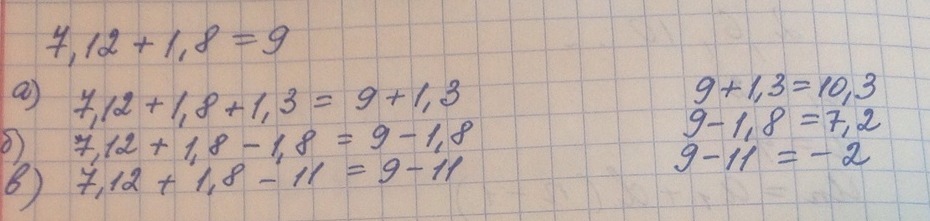 7,12 + 1,8 = 9
а) 7,12 + 1,8 + 1,3 = 9 + 1,3
б) 7,12 + 1,8 - 1,8 = 9 - 1,8
в) 7,12 + 1,8 - 11 = 9 - 11
9 + 1,3 = 10,3
9 - 1,8 = 7,2
9 - 11 = - 2